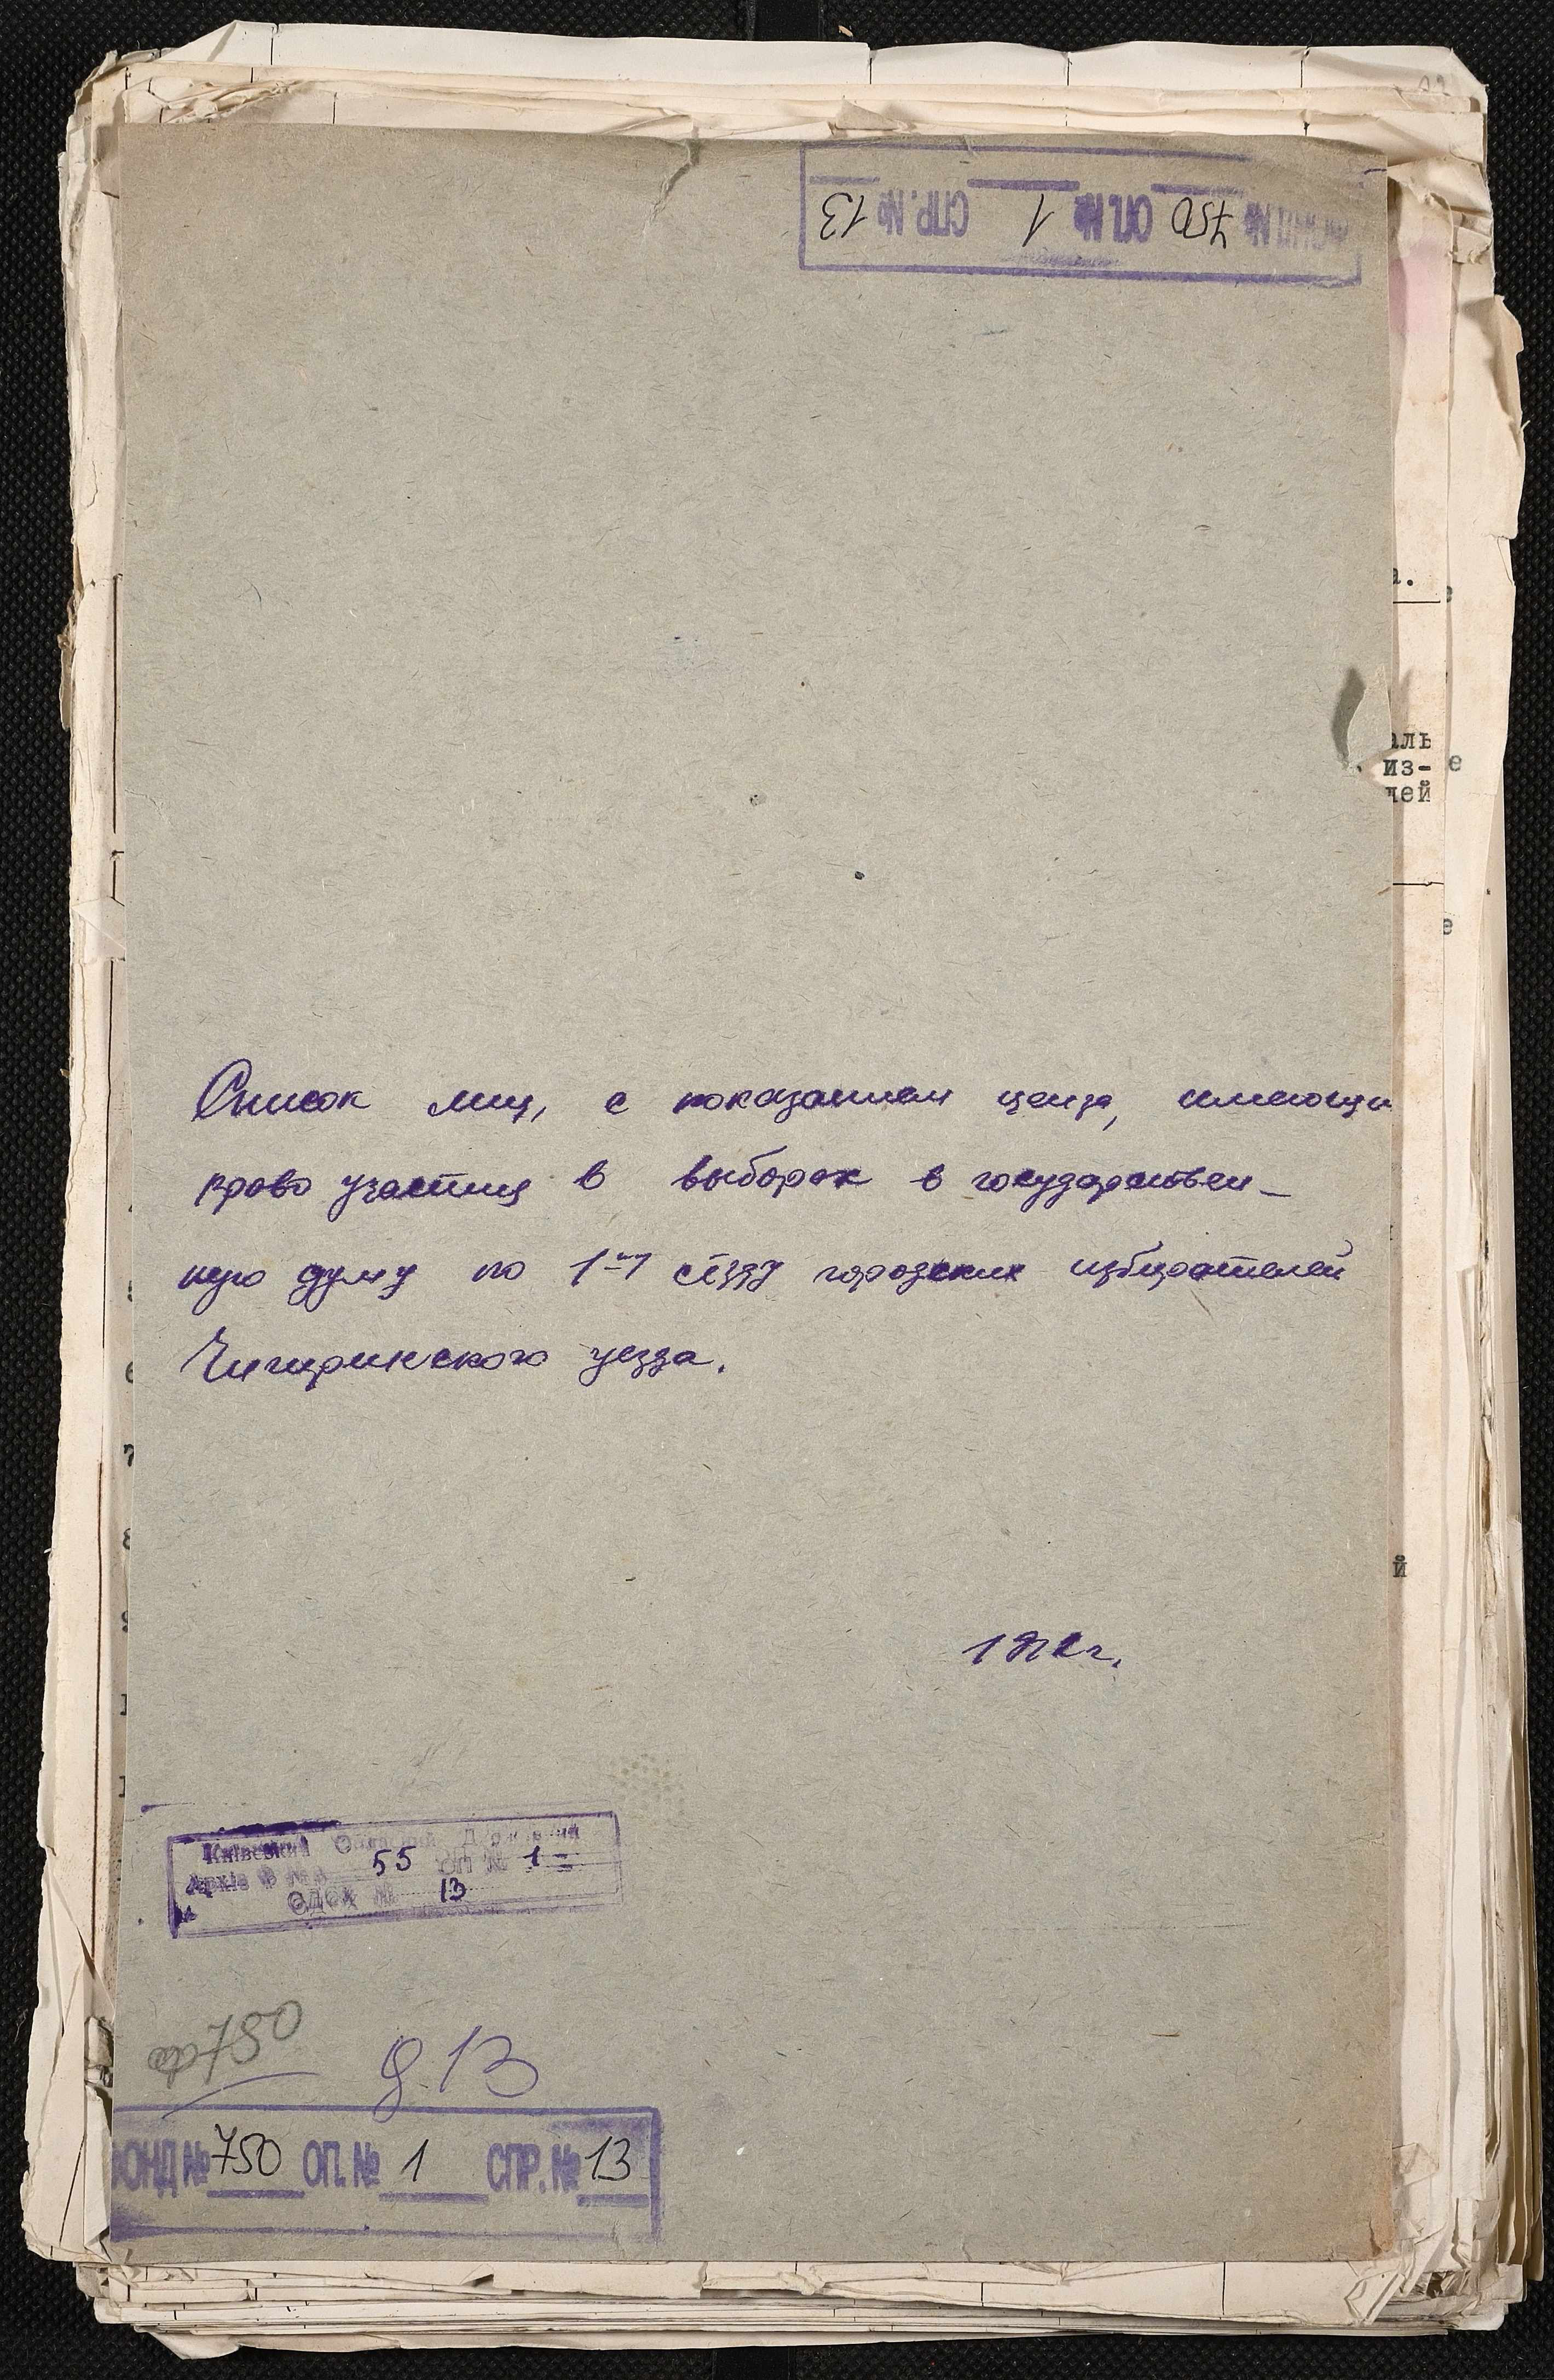 ФОНД № 750 ОП. № 1 СПР. № 13
Список лиц, с показанием ценза, имеющи
право участия в выборах в государствен-
ную думу по 1му с'езду городских избирателей
Чигиринского уезда.
г.
Київський Обласний Державний
Архів Ф № 55 ОП № 1
ОДОХ № 13
ф 750
д. 13
ФОНД № 750 ОП. № 1 СПР. № 13
а.
аль
из-
лей
е
е
й
7